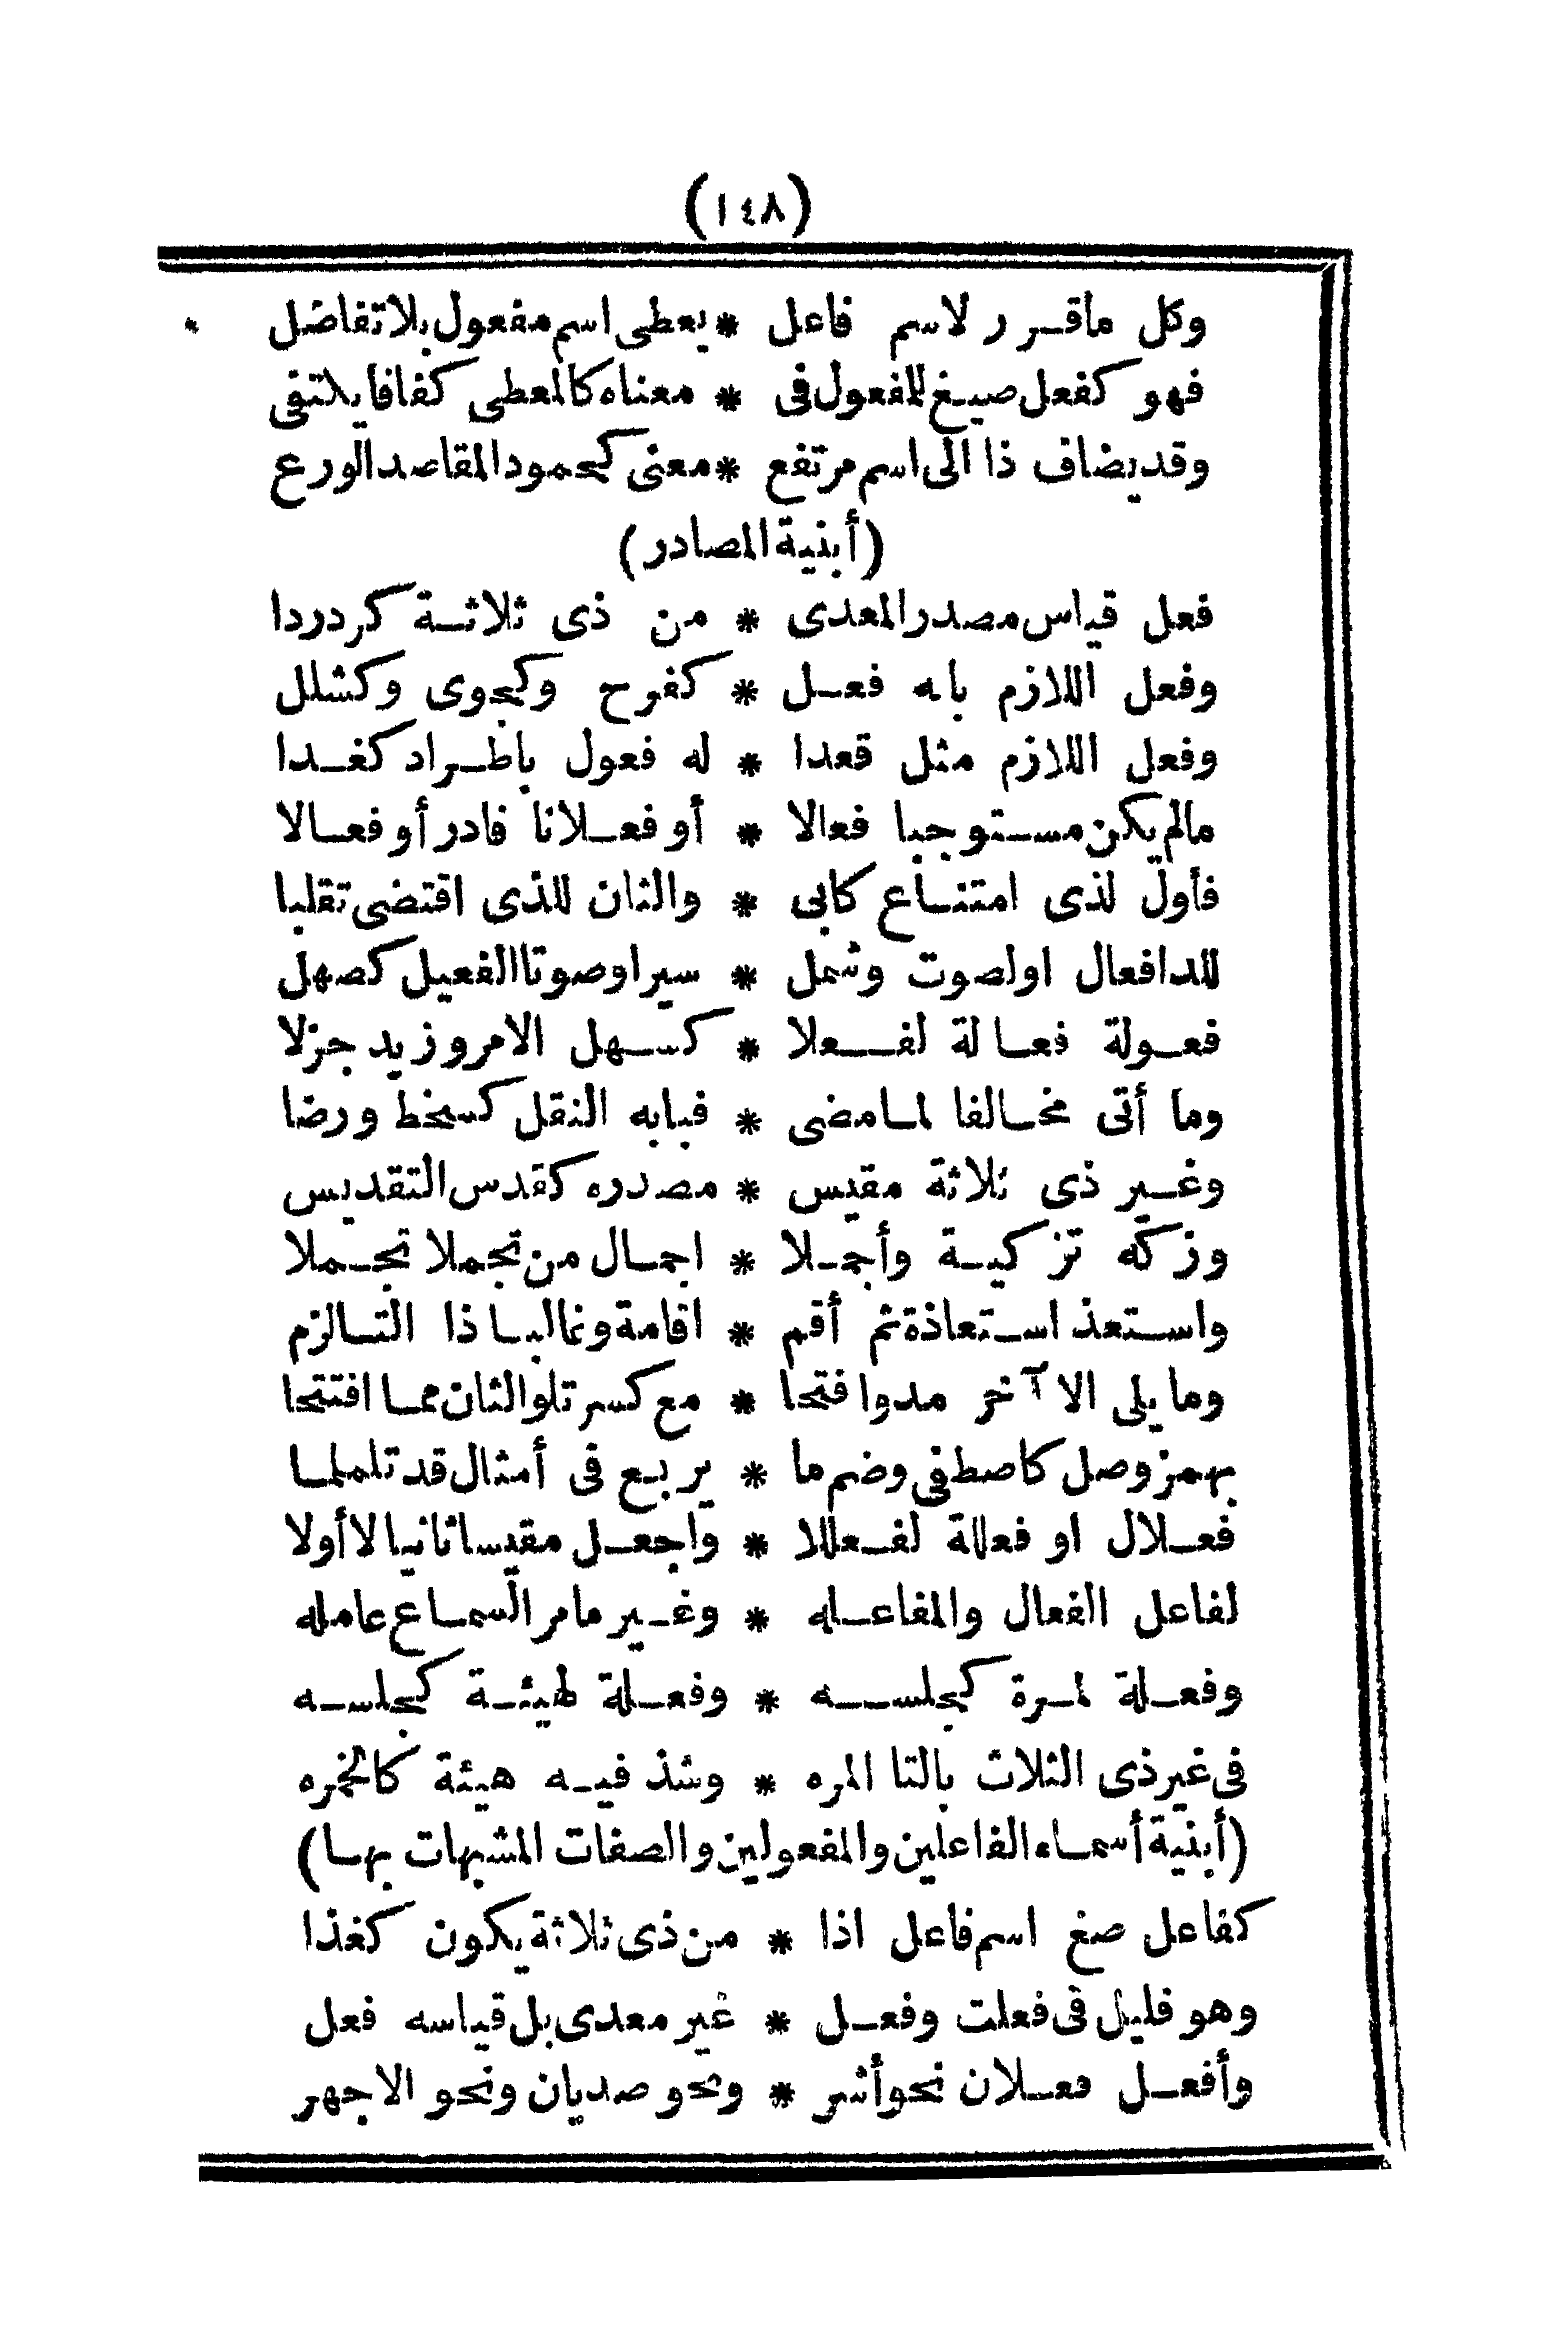 (١٤٨)
وكل ماقرر لاسم فاعل * يعطى اسم مفعول بلا تفاضل
فهو كفعل صيغ للمفعول فى * معناه كالمعطى كفافا يلا تفى
وقد يضاف ذا الى اسم مرتفع * معنى كمحمود المقاصد الورع
(أبنية المصادر)
فعل قياس مصدر المعدى * من ذى ثلاثة كردردا
وفعل اللازم بابه فعل * كفرح وكجوى وكشلل
وفعل اللازم مثل قعدا * له فعول باطراد كغدا
مالم يكن مستوجبا فعالا * أو فعلانا فادر أو فعالا
فأول لذى امتناع كابى * والثان للذى اقتضى تقلبا
للدا فعال اولصوت وشمل * سيرا وصوتا الفعيل كصهل
فعولة فعالة لفعلا * كسهل الامر وزيد جزلا
وما أتى مخالفا لما مضى * فبابه النقل كسخط ورضا
وغير ذى ثلاثة مقيس * مصدره كقدس التقديس
وزكه تزكية وأجملا * اجمال من تجملا تجملا
واستعذ استعاذة ثم أقم * اقامة وغالبا ذا التا لزم
وما يلى الا آخر مدوا فتحا * مع كسر تلو الثان مما افتتحا
بهمز وصل كاصطفى وضم ما * يربع فى أمثال قد تلملما
فعلال او فعللة لفعللا * واجعل مقيسا ثانيا لا أولا
لفاعل الفعال والمفاعله * وغير مامر السماع عامله
وفعلة لمرة كجلسه * وفعلة لهيئة كجلسه
فى غير ذى الثلاث بالتا المره * وشذ فيه هيئة كالخمره
(أبنية أسماء الفاعلين والمفعولين والصفات المشبهات بها)
كفاعل صغ اسم فاعل اذا * من ذى ثلاثة يكون كغذا
وهو قليل فى فعلت وفعل * غير معدى بل قياسه فعل
وأفعل فعلان نحو أشر * ونحو صديان ونحو الاجهر